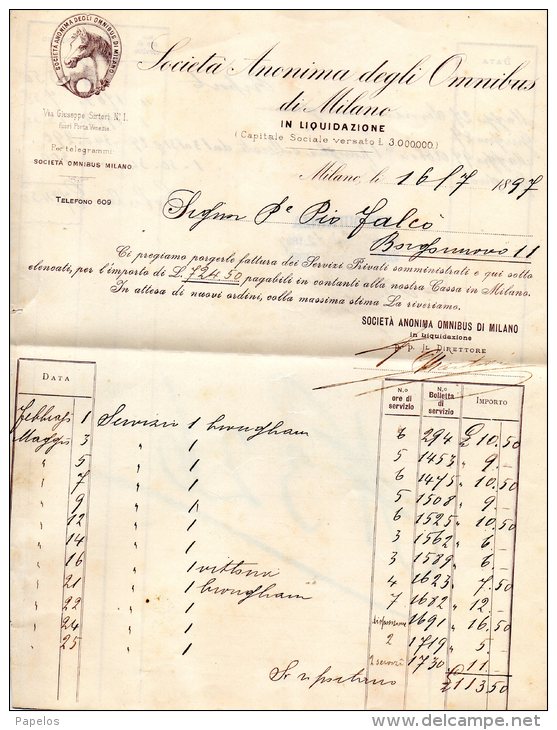 SOCIETÀ ANONIMA DEGLI OMNIBUS DI MILANO
Società Anonima degli Omnibus
di Milano
IN LIQUIDAZIONE
(Capitale Sociale versato £. 3.000.000.)
Via Giuseppe Sirtori N.º 1.
fuori Porta Venezia
Per telegrammi
SOCIETÀ OMNIBUS MILANO
TELEFONO 609
Milano, li 16/7 1897
Signor Pio Falcò
Borgonuovo 11
Ci pregiamo porgerle fattura dei Servizi Privati somministrati e qui sotto
elencati, per l'importo di £. 724.50 pagabili in contanti alla nostra Cassa in Milano.
In attesa di nuovi ordini, colla massima stima La riveriamo.
SOCIETÀ ANONIMA OMNIBUS DI MILANO
in Liquidazione
p. p. IL DIRETTORE
DATA N.º ore di servizio N.º Bolletta di servizio IMPORTO
1 Servizio 1 brougham 6 294 £ 10.50
Maggio 3 " 1 " 5 1453 " 9.-
" 5 " 1 6 1475 " 10.50
" 7 " 1 5 1508 " 9.-
" 9 " 1 6 1525 " 10.50
" 12 " 1 3 1562 " 6.-
" 14 " 1 3 1589 " 6.-
" 16 " 1 vittoria 4 1623 " 7.50
" 21 " 1 brougham 7 1682 " 12.-
" 22 " 1 " 1691 " 16.50
" 24 " 1 2 1719 " 5.-
" 25 1 2 servizi 1730 " 11.-
Si riportano £ 113.50
Papelos
www.delcampe.net